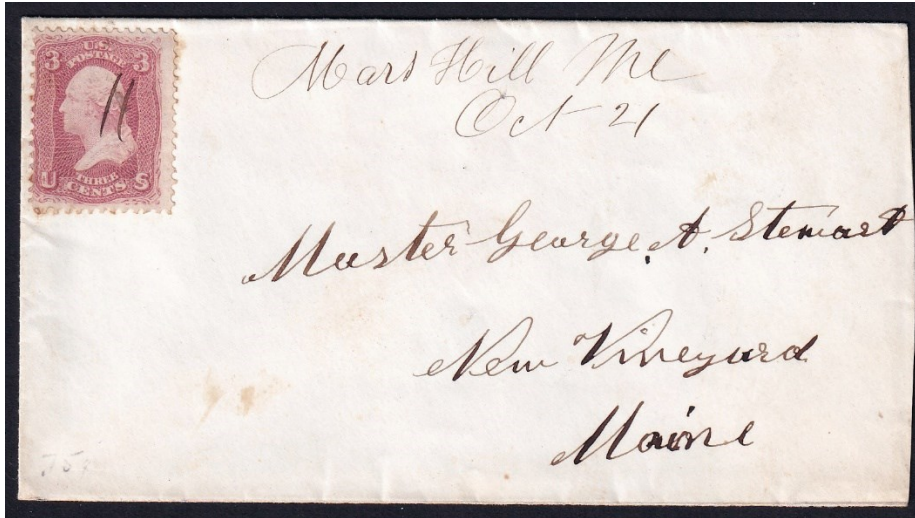 U.S.
POSTAGE
3 3
THREE
CENTS
U S
Mars Hill Me
Oct 21
Master George A. Stewart
New Vineyard
Maine
.75